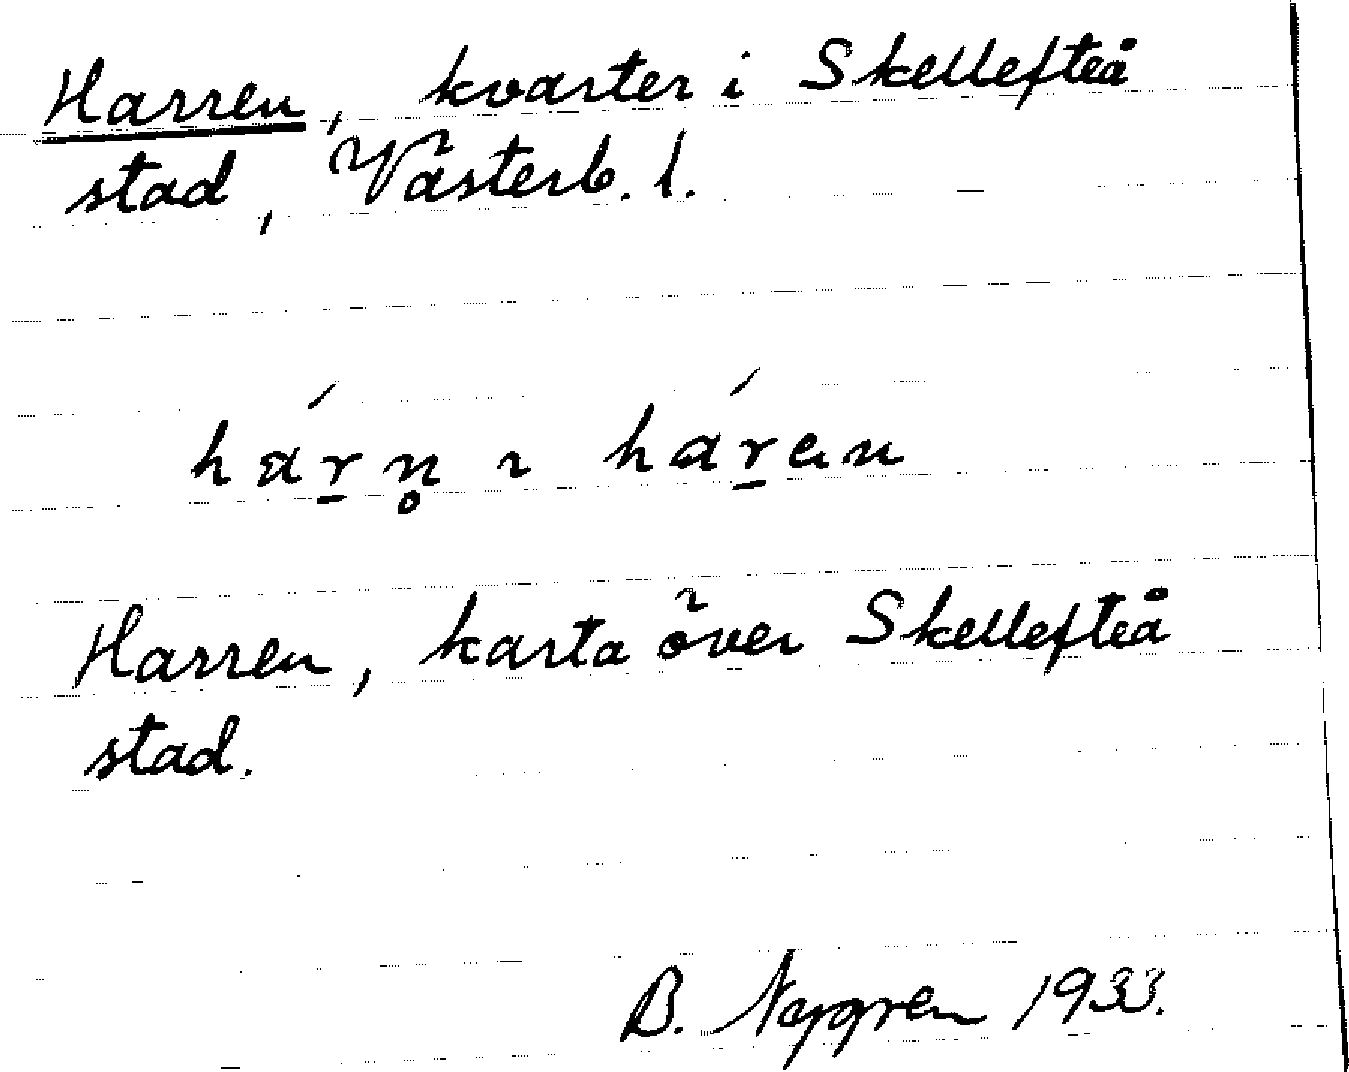 Harren, kvarter i Skellefteå
stad, Västerb. l.
hár̠n̥ ı hár̠en
Harren, karta över Skellefteå
stad.
B. Nygren 1933.